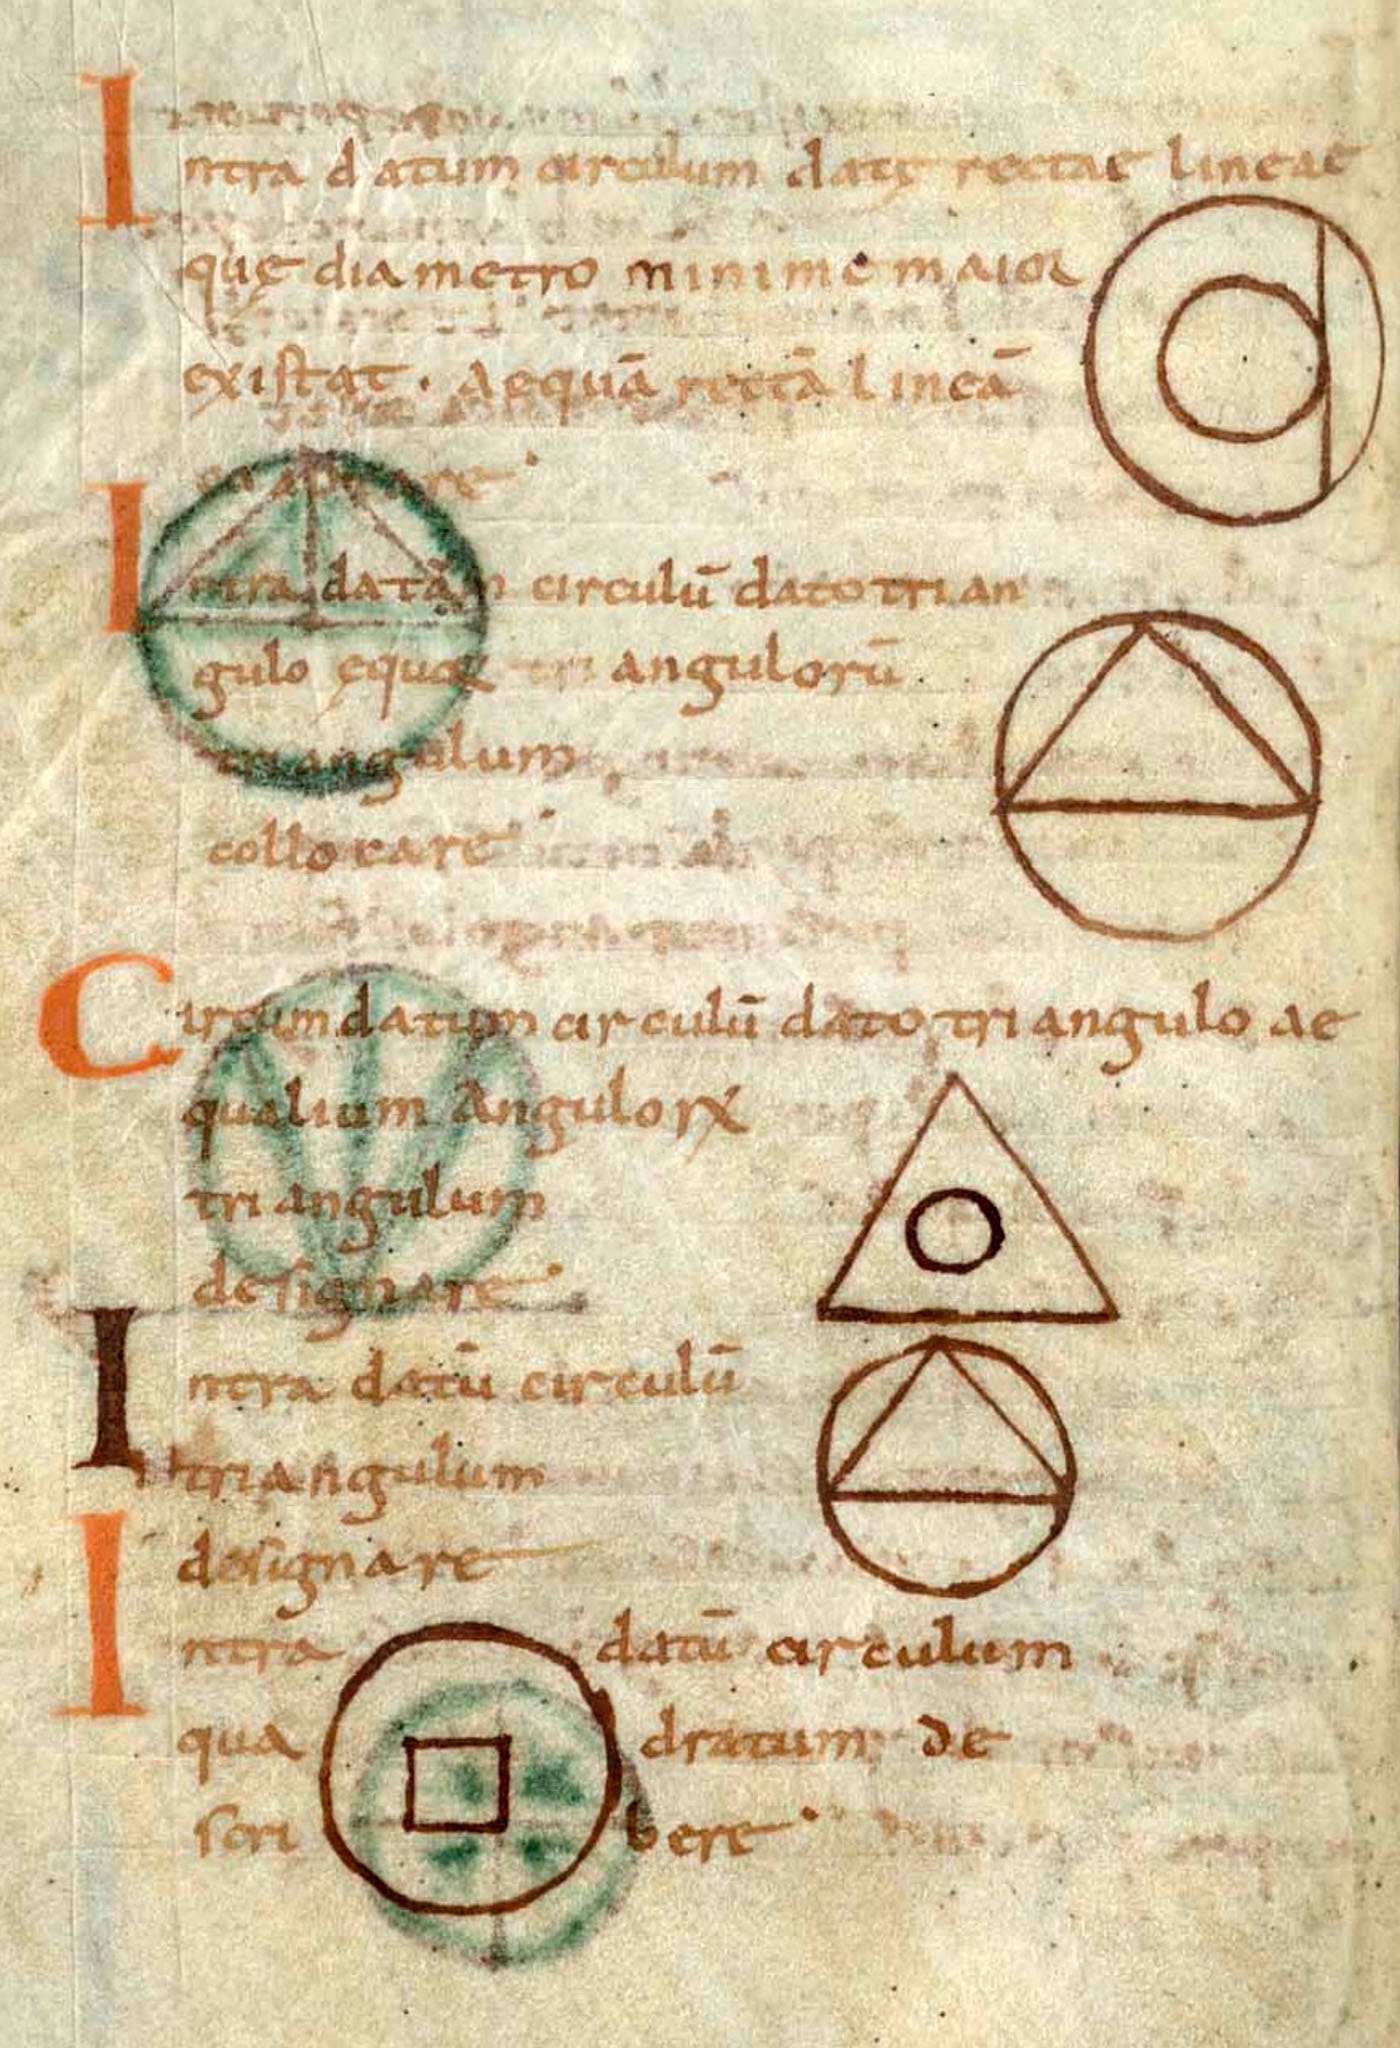 Intra datum circulum datę rectae lineae
quę diametro minime maior
existat. Aequā rectā lineā
coaptare
Intra datām circulū dato trian
gulo equoꝝ tri angulorū
triangulum
collocare
Circum datum circulū dato triangulo ae
qualium Anguloꝝ
triangulum
designare
Intra datū circulū
triangulum
designare
Intra datū circulum
qua dratum de
scri bere